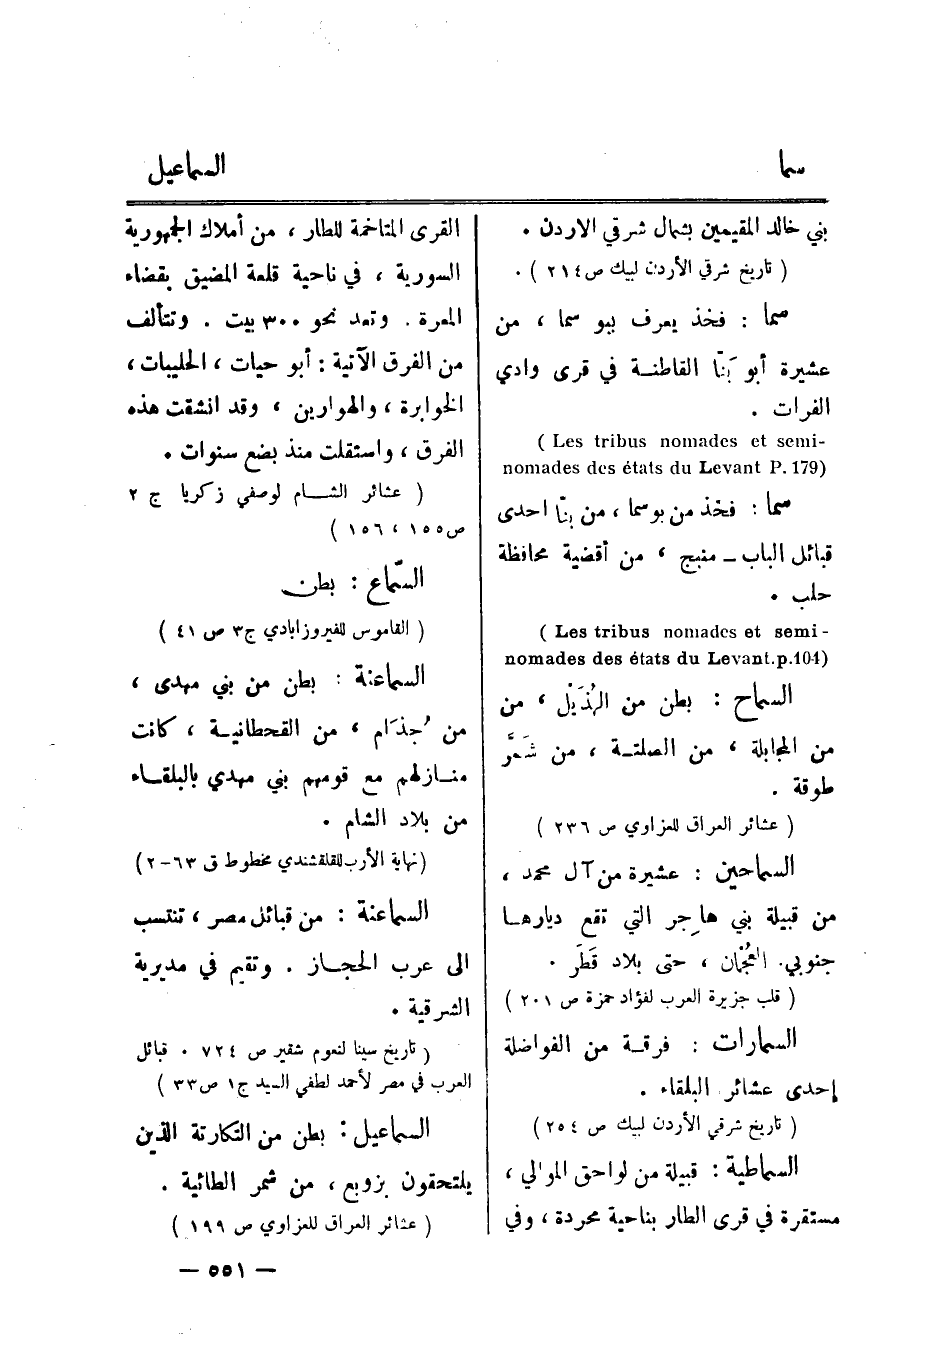 سما
السماعيل
بني خالد المقيمين بشمال شرقي الاردن .
( تاريخ شرقي الأردن لبيك ص ٢١٤ ) .
سما : فخذ يعرف ببو سما ، من
عشيرة أبو بَنّا القاطنة في قرى وادي
الفرات .
( Les tribus nomades et semi-
nomades des états du Levant P. 179)
سما : فخذ من بو سما ، من بنّا احدى
قبائل الباب ــ منبج ، من أقضية محافظة
حلب .
( Les tribus nomades et semi-
nomades des états du Levant.p.104)
السماح : بطن من الهُذَيْل ، من
من المجابلة ، من الصلتة ، من شَمَّر
طوقة .
( عشائر العراق للعزاوي ص ٢٣٦ )
السماحين : عشيرة من آل محمد ،
من قبيلة بني هاجر التي تقع ديارها
جنوبي العُجْمان ، حتى بلاد قَطَر .
( قلب جزيرة العرب لفؤاد حمزة ص ٢٠١ )
السمارات : فرقة من الفواضلة
إحدى عشائر البلقاء .
( تاريخ شرقي الأردن لبيك ص ٢٥٤ )
السماطية : قبيلة من لواحق الموالي ،
مستقرة في قرى الطار بناحية محردة ، وفي
القرى المتاخمة للطار ، من أملاك الجمهورية
السورية ، في ناحية قلعة المضيق بقضاء
المعرة . وتعد نحو ٣٠٠ بيت . وتتألف
من الفرق الآتية : أبو حيات ، الحليبات ،
الخوابرة ، والهوارين ، وقد انشقت هذه
الفرق ، واستقلت منذ بضع سنوات .
( عشائر الشام لوصفي زكريا ج ٢
ص ١٥٥ ، ١٥٦ )
السمّاع : بطن
( القاموس للفيروزابادي ج ٣ ص ٤١ )
السماعنة : بطن من بني مهدى ،
من جُذَام ، من القحطانية ، كانت
منازلهم مع قومهم بني مهدي بالبلقاء
من بلاد الشام .
(نهاية الأرب للقلقشندي مخطوط ق ٦٣-٢)
السماعنة : من قبائل مصر ، تنتسب
الى عرب الحجاز . وتقيم في مديرية
الشرقية .
( تاريخ سينا لنعوم شقير ص ٧٢٤ . قبائل
العرب في مصر لأحمد لطفي السيد ج ١ ص ٣٣ )
السماعيل : بطن من التكارتة الذين
يلتحقون بزوبع ، من شمر الطائية .
( عشائر العراق للعزاوي ص ١٩٩ )
— ٥٥١ —